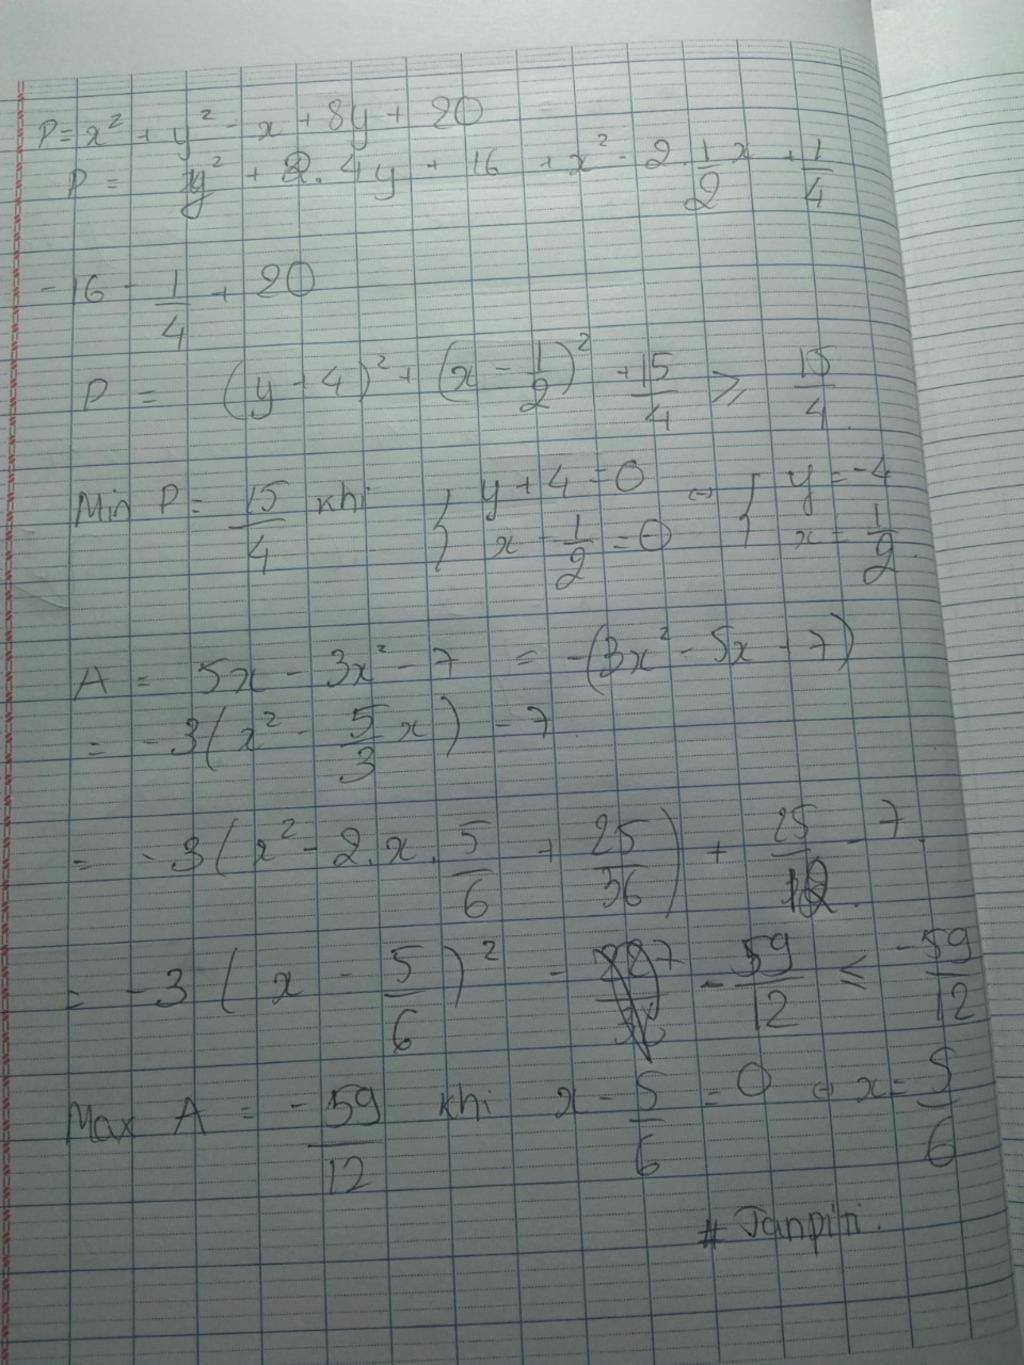 P = x² + y² - x + 8y + 20
P = y² + 2. 4y + 16 + x² - 2 1/2 x + 1/4
- 16 - 1/4 + 20
P = (y + 4)² + (x - 1/2)² + 15/4 ≥ 15/4
Min P = 15/4 khi { y + 4 = 0 ⇔ { y = -4
x - 1/2 = 0 x = 1/2
A = 5x - 3x² - 7 = -(3x² - 5x + 7)
= -3(x² - 5/3 x) - 7
= -3(x² - 2.x. 5/6 + 25/36) + 25/12 - 7
= -3(x - 5/6)² - 59/12 ≤ -59/12
Max A = -59/12 khi x - 5/6 = 0 ⇔ x = 5/6